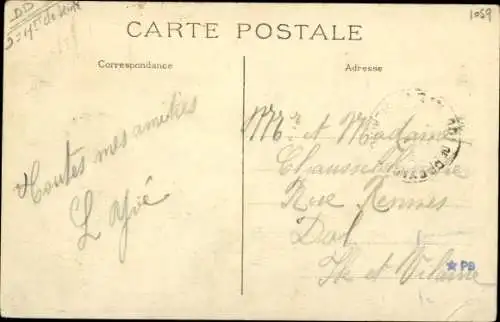 DD
1059
CARTE POSTALE
Correspondance
Adresse
Toutes mes amitiés
L
Mr et Madame
Rue Rennes
Dol
Ile et Vilaine
★ PB